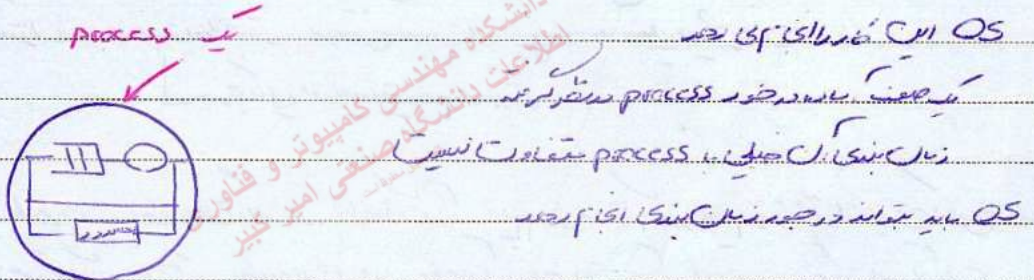 یک process
OS این کار را انجام می دهد
یک صف باید در خود process در نظر گرفت
زمان بندی آن خیلی با process متفاوت نیست
OS باید بتواند در خود زمان بندی انجام دهد
دانشکده مهندسی کامپیوتر و فناوری
اطلاعات دانشگاه صنعتی امیر کبیر